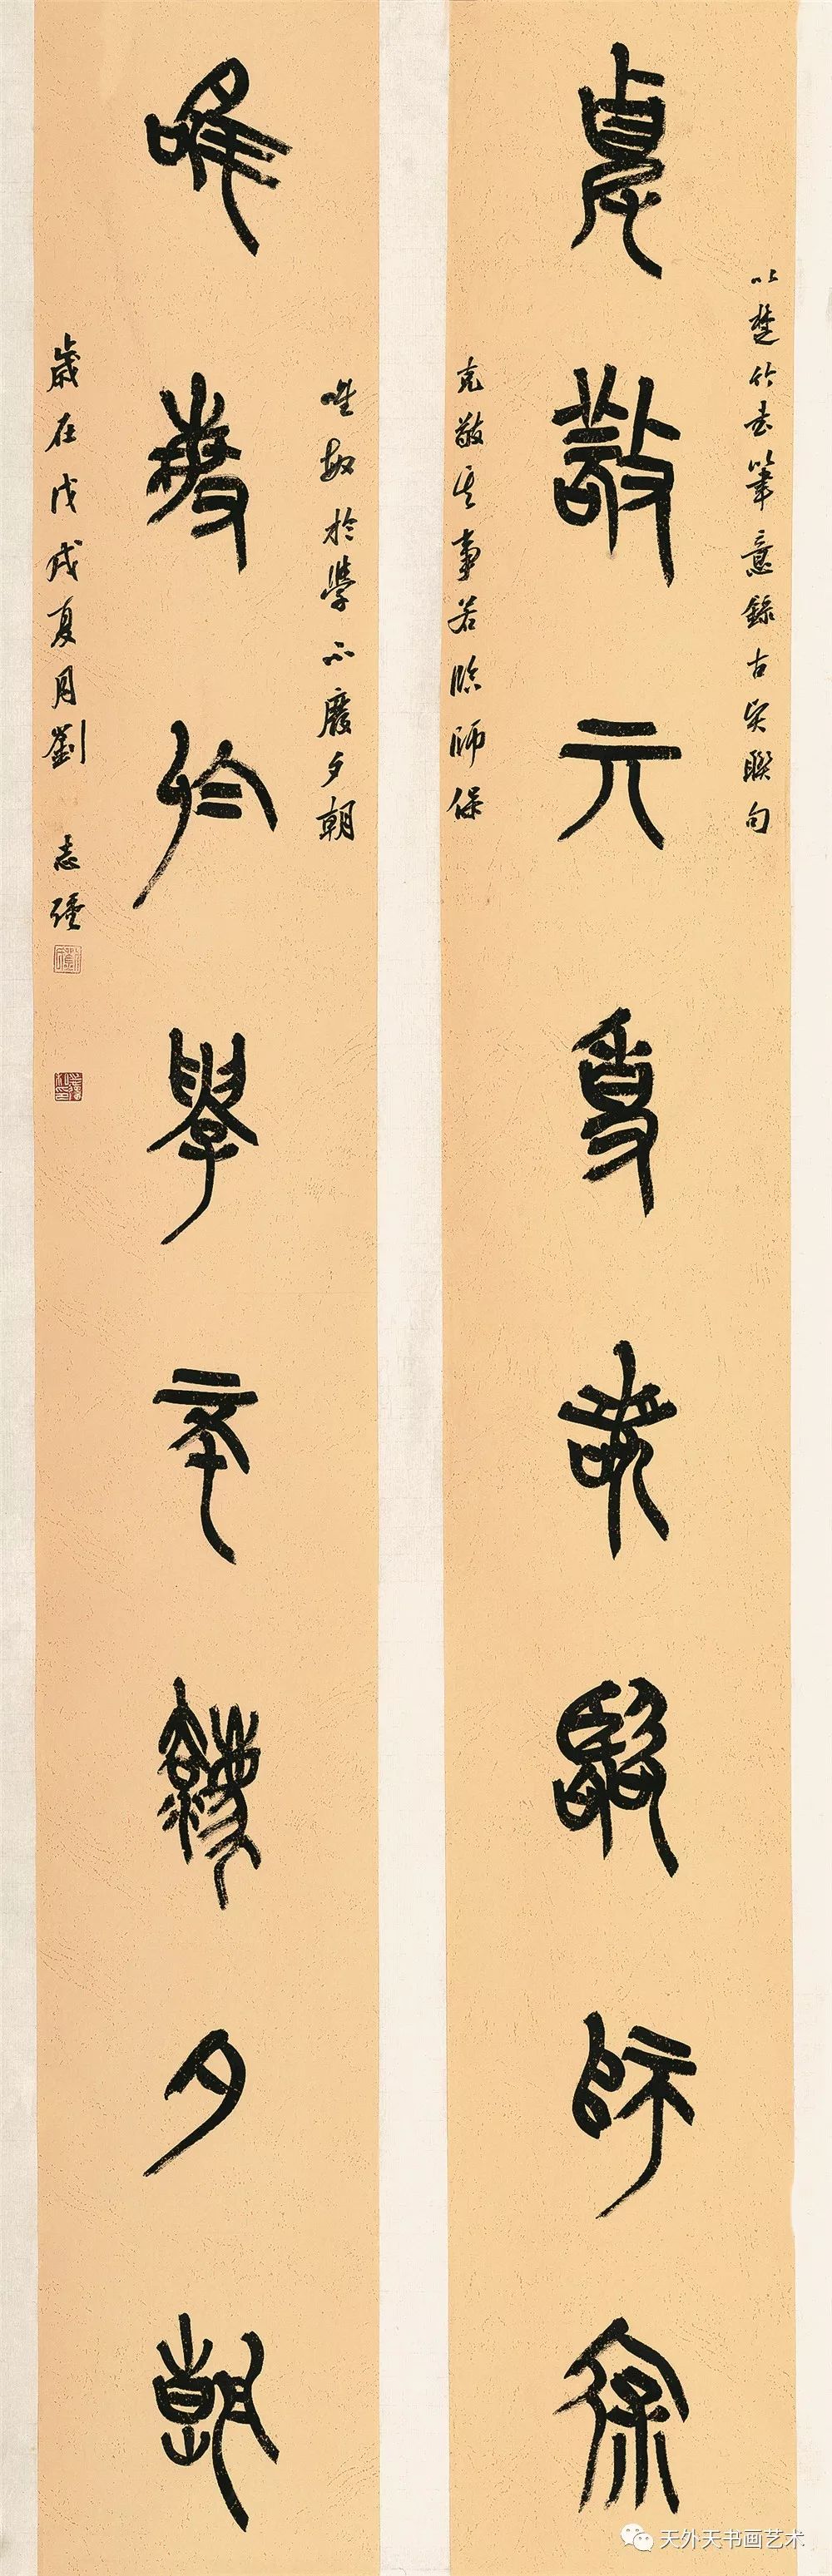 克敬其事若臨師保
以楚竹書筆意錄古吳聯句
克敬其事若臨師保
唯敏於學不廢夕朝
唯敏於學不廢夕朝
歲在戊戌夏月劉志
天外天书画艺术